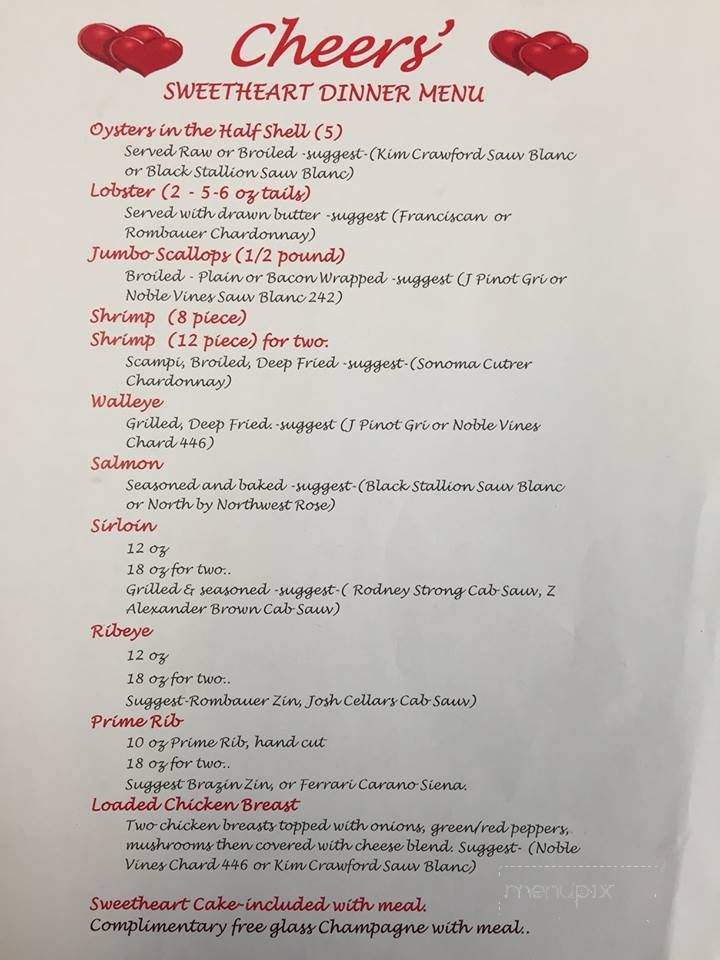 Cheers'
SWEETHEART DINNER MENU
Oysters in the Half Shell (5)
Served Raw or Broiled -suggest-(Kim Crawford Sauv Blanc
or Black Stallion Sauv Blanc)
Lobster (2 - 5-6 oz tails)
Served with drawn butter -suggest (Franciscan or
Rombauer Chardonnay)
Jumbo Scallops (1/2 pound)
Broiled - Plain or Bacon Wrapped -suggest (J Pinot Gri or
Noble Vines Sauv Blanc 242)
Shrimp (8 piece)
Shrimp (12 piece) for two.
Scampi, Broiled, Deep Fried -suggest-(Sonoma Cutrer
Chardonnay)
Walleye
Grilled, Deep Fried.-suggest (J Pinot Gri or Noble Vines
Chard 446)
Salmon
Seasoned and baked -suggest-(Black Stallion Sauv Blanc
or North by Northwest Rose)
Sirloin
12 oz
18 oz for two..
Grilled & seasoned -suggest-( Rodney Strong Cab Sauv, Z
Alexander Brown Cab Sauv)
Ribeye
12 oz
18 oz for two..
Suggest-Rombauer Zin, Josh Cellars Cab Sauv)
Prime Rib
10 oz Prime Rib, hand cut
18 oz for two..
Suggest Brazin Zin, or Ferrari Carano Siena.
Loaded Chicken Breast
Two chicken breasts topped with onions, green/red peppers,
mushrooms then covered with cheese blend. Suggest- (Noble
Vines Chard 446 or Kim Crawford Sauv Blanc)
menupix
Sweetheart Cake-included with meal.
Complimentary free glass Champagne with meal..